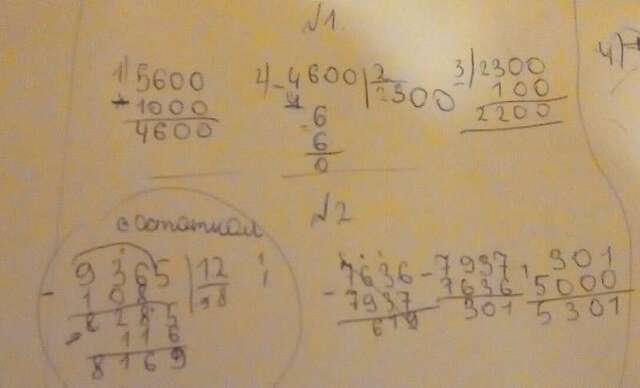 №1.
1) 5600
+ 1000
4600
2) - 4600 | 2
4 2300
- 6
6
0
3) 2300
- 100
2200
4)
№2
с остатком
- 9365 | 12
108 98
8285
- 116
8169
7636
- 7937
- 7937
7636
301
301
5000
5301